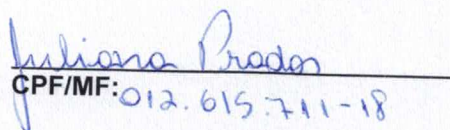 Juliana Prados
CPF/MF: 012.615.711-18